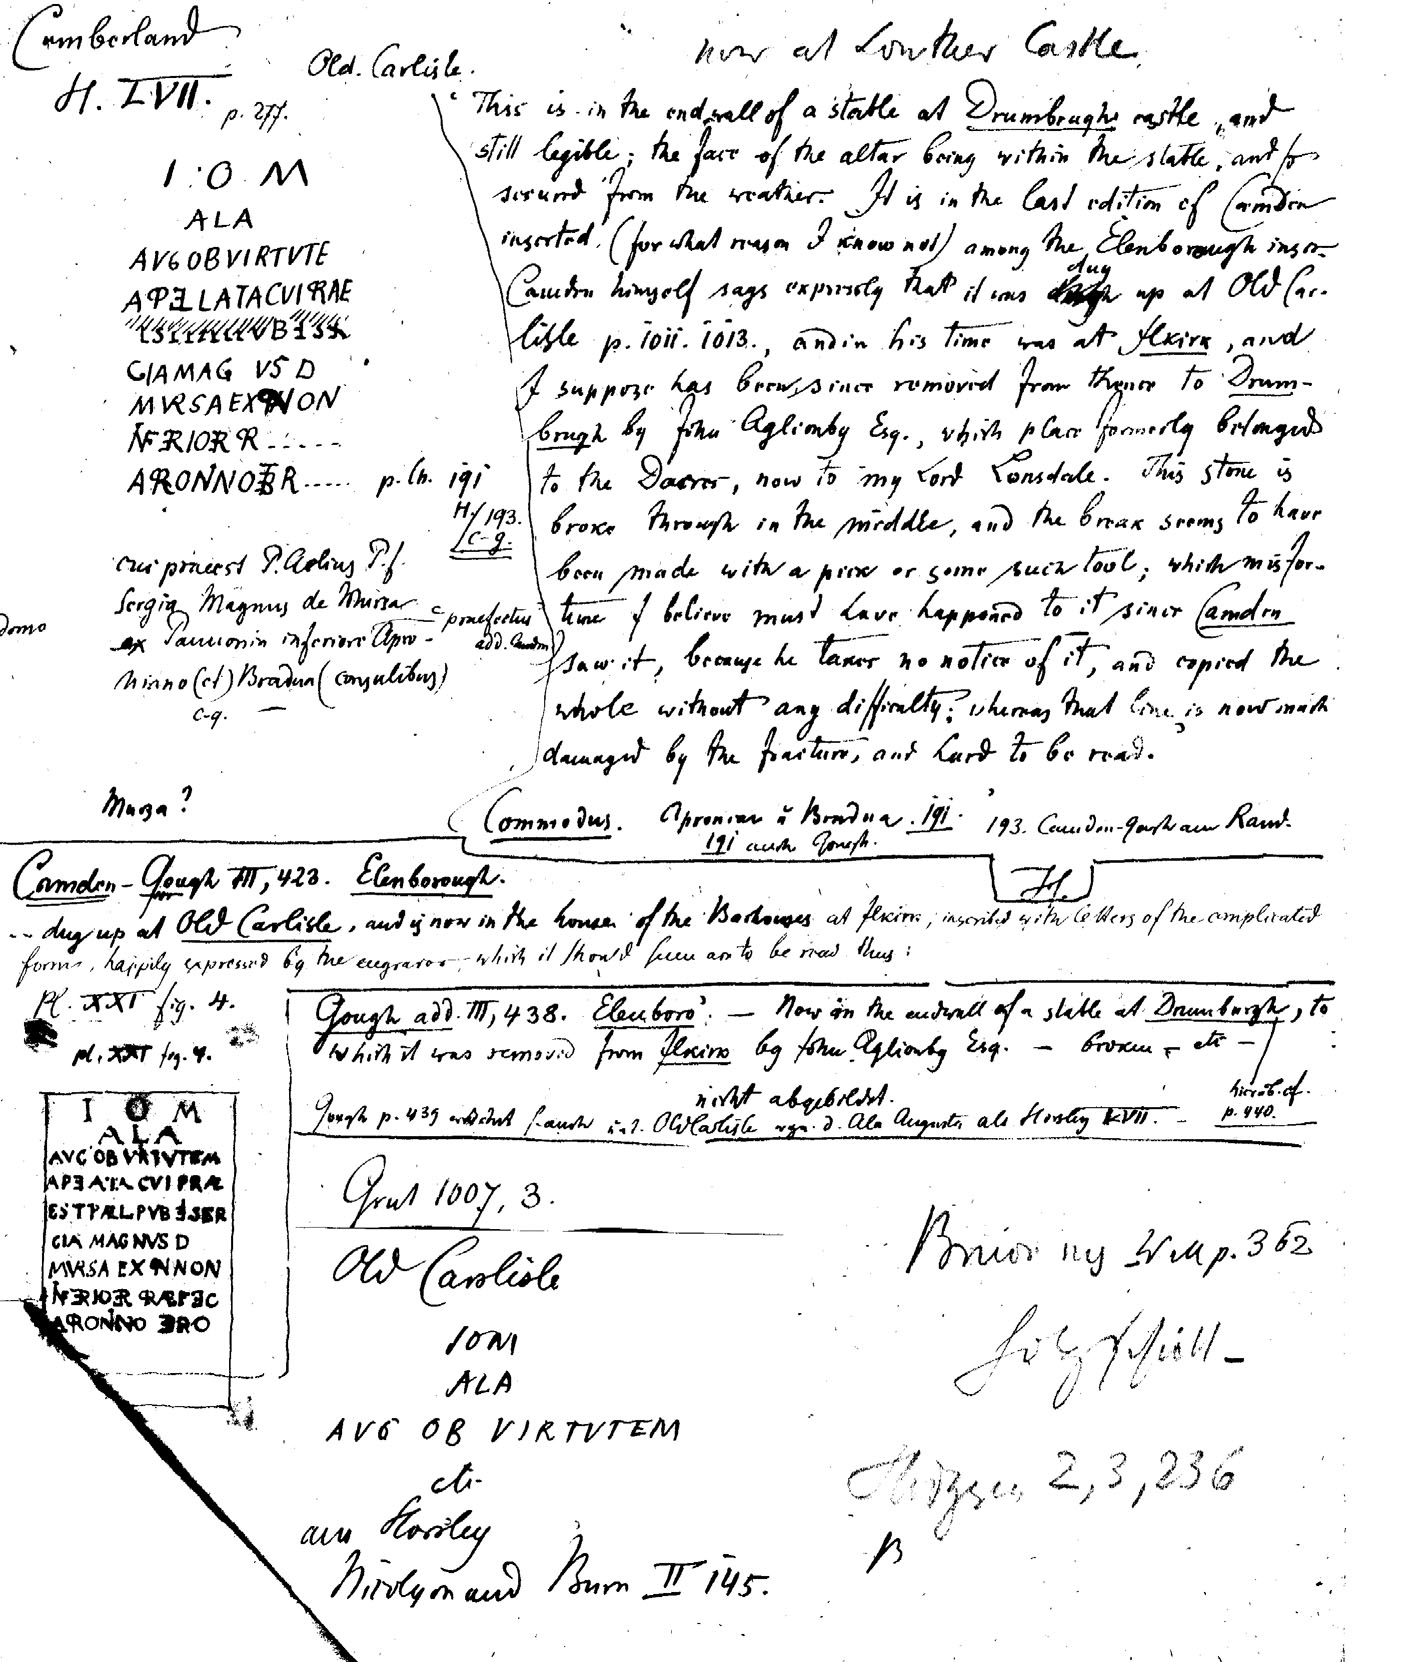 Cumberland
H. LVII. p. 277.
Old. Carlisle.
now at Lowther Castle
I . O M
ALA
AVG OB VIRTVTE
APELLATA CVI PRAE
GIA MAG VS D
MVRSA EX NON
NFERIOR R.....
APRONNO BR..... p. Ch. 191
H / 193.
c-g.
cui praeest P. Aelius P. f.
Sergia Magnus de Mursa
domo
ex Pannonia inferiore Apro-
niano (et) Bradua (consulibus)
c-g.
praefectus
add. Camden
Mursa?
This is in the end wall of a stable at Drumbrughs castle, and
still legible; the face of the altar being within the stable, and so
secured from the weather. It is in the last edition of Camden
inserted (for what reason I know not) among the Elenborough inscr-
Camden himself says expressly that it was dug up at Old Car-
lisle p. 1011. 1013., and in his time was at Ilkirk, and
I suppose has been since removed from thence to Drum-
brugh by John Aglionby Esq., which place formerly belonged
to the Dacres, now to my Lord Lonsdale. This stone is
broke through in the middle, and the break seems to have
been made with a pick or some such tool; which misfor-
tune I believe must have happened to it since Camden
saw it, because he takes no notice of it, and copied the
whole without any difficulty; whereas that line is now much
damaged by the fracture, and hard to be read.
Commodus. Apronian u Bradua. 191. 193. Camden-Gough am Rand.
191 auch Gough.
H
Camden-Gough III, 423. Elenborough.
-- dug up at Old Carlisle, and is now in the house of the Barhouses at Ilkirk, inscribed with letters of the complicated
form, happily expressed by the engraver, which it should seem are to be read thus:
pl. XXI fig. 4.
pl. XXI fig. 4.
Gough add. III, 438. Elenboro'. — Now in the endwall of a stable at Drumburgh, to
which it was removed from Ilkirk by John Aglionby Esq. — broken - etc —
nicht abgebildet.
Gough p. 439 Old Carlisle d. Ala Augusta als Horsley LVII. —
p. 440.
I O M
ALA
AVG OB VIRTVTEM
APEATA CVI PRAE
EST PAEL PVB F SER
GIA MAGNVS D
MVRSA EX PANNON
INFERIOR PRAEFEC
APRONNO BRO
Grut 1007, 3.
Old Carlisle
IOM
ALA
AVG OB VIRTVTEM
etc.
aus Horsley
Nicolson and Burn II 145.
p. 362
2, 3, 236
B